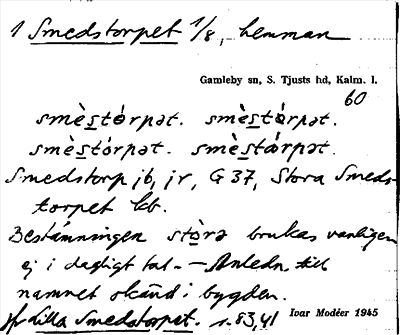 1 Smedstorpet 1/8, hemman
Gamleby sn, S. Tjusts hd, Kalm. l.
60
smèstórpət. smèstórpət.
smèstórpət. smèstórpət.
Smedstorp jb, jr, G 37, Stora Smeds-
torpet kb.
Bestämningen stòrə brukas vanligen
ej i dagligt tal. – Anledn. till
namnet okänd i bygden.
jfr Lilla Smedstorpet. 1.83,41
Ivar Modéer 1945